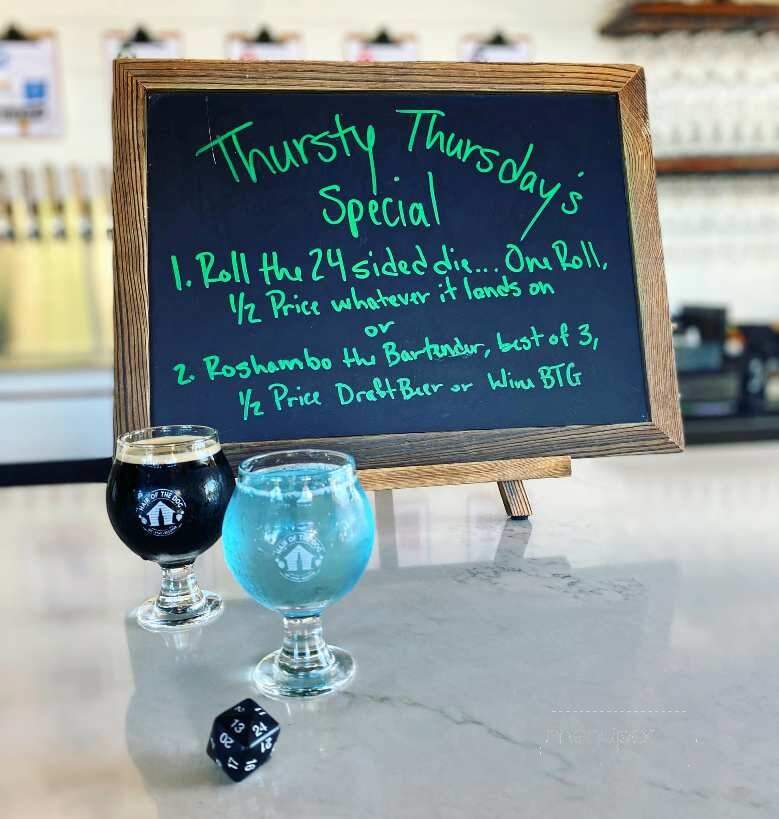 Thursty Thursday's
Special
1. Roll the 24 sided die... One Roll,
1/2 Price whatever it lands on
or
2. Roshambo the Bartender, best of 3,
1/2 Price Draft Beer or Wine BTG
HAIR OF THE DOG
HAIR OF THE DOG
2
13
24
20
17